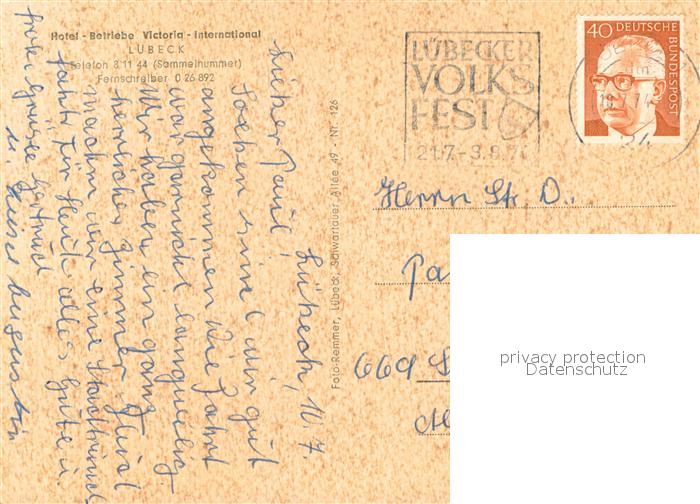 Hotel - Betriebe Victoria - International
LÜBECK
Telefon 8 11 44 (Sammelnummer)
Fernschreiber 0 26 892
Lübeck, 10. 7.
Lieber Paul!
Soeben sind wir gut
angekommen die Fahrt
war garnicht langweilig
Wir haben ein ganz
herrliches Zimmer. Jetzt
machen wir eine Stadtrund
fahrt. Für Heute alles Gute u.
frohe Grüsse Gertrud
u.
Foto-Remmer, Lübeck, Schwartauer Allee 49 - Nr. 126
LÜBECKER
VOLKS
FEST
21.7.-3.8.7
40 DEUTSCHE
BUNDESPOST
Herrn Str D.
Pa
669 S
privacy protection
Datenschutz